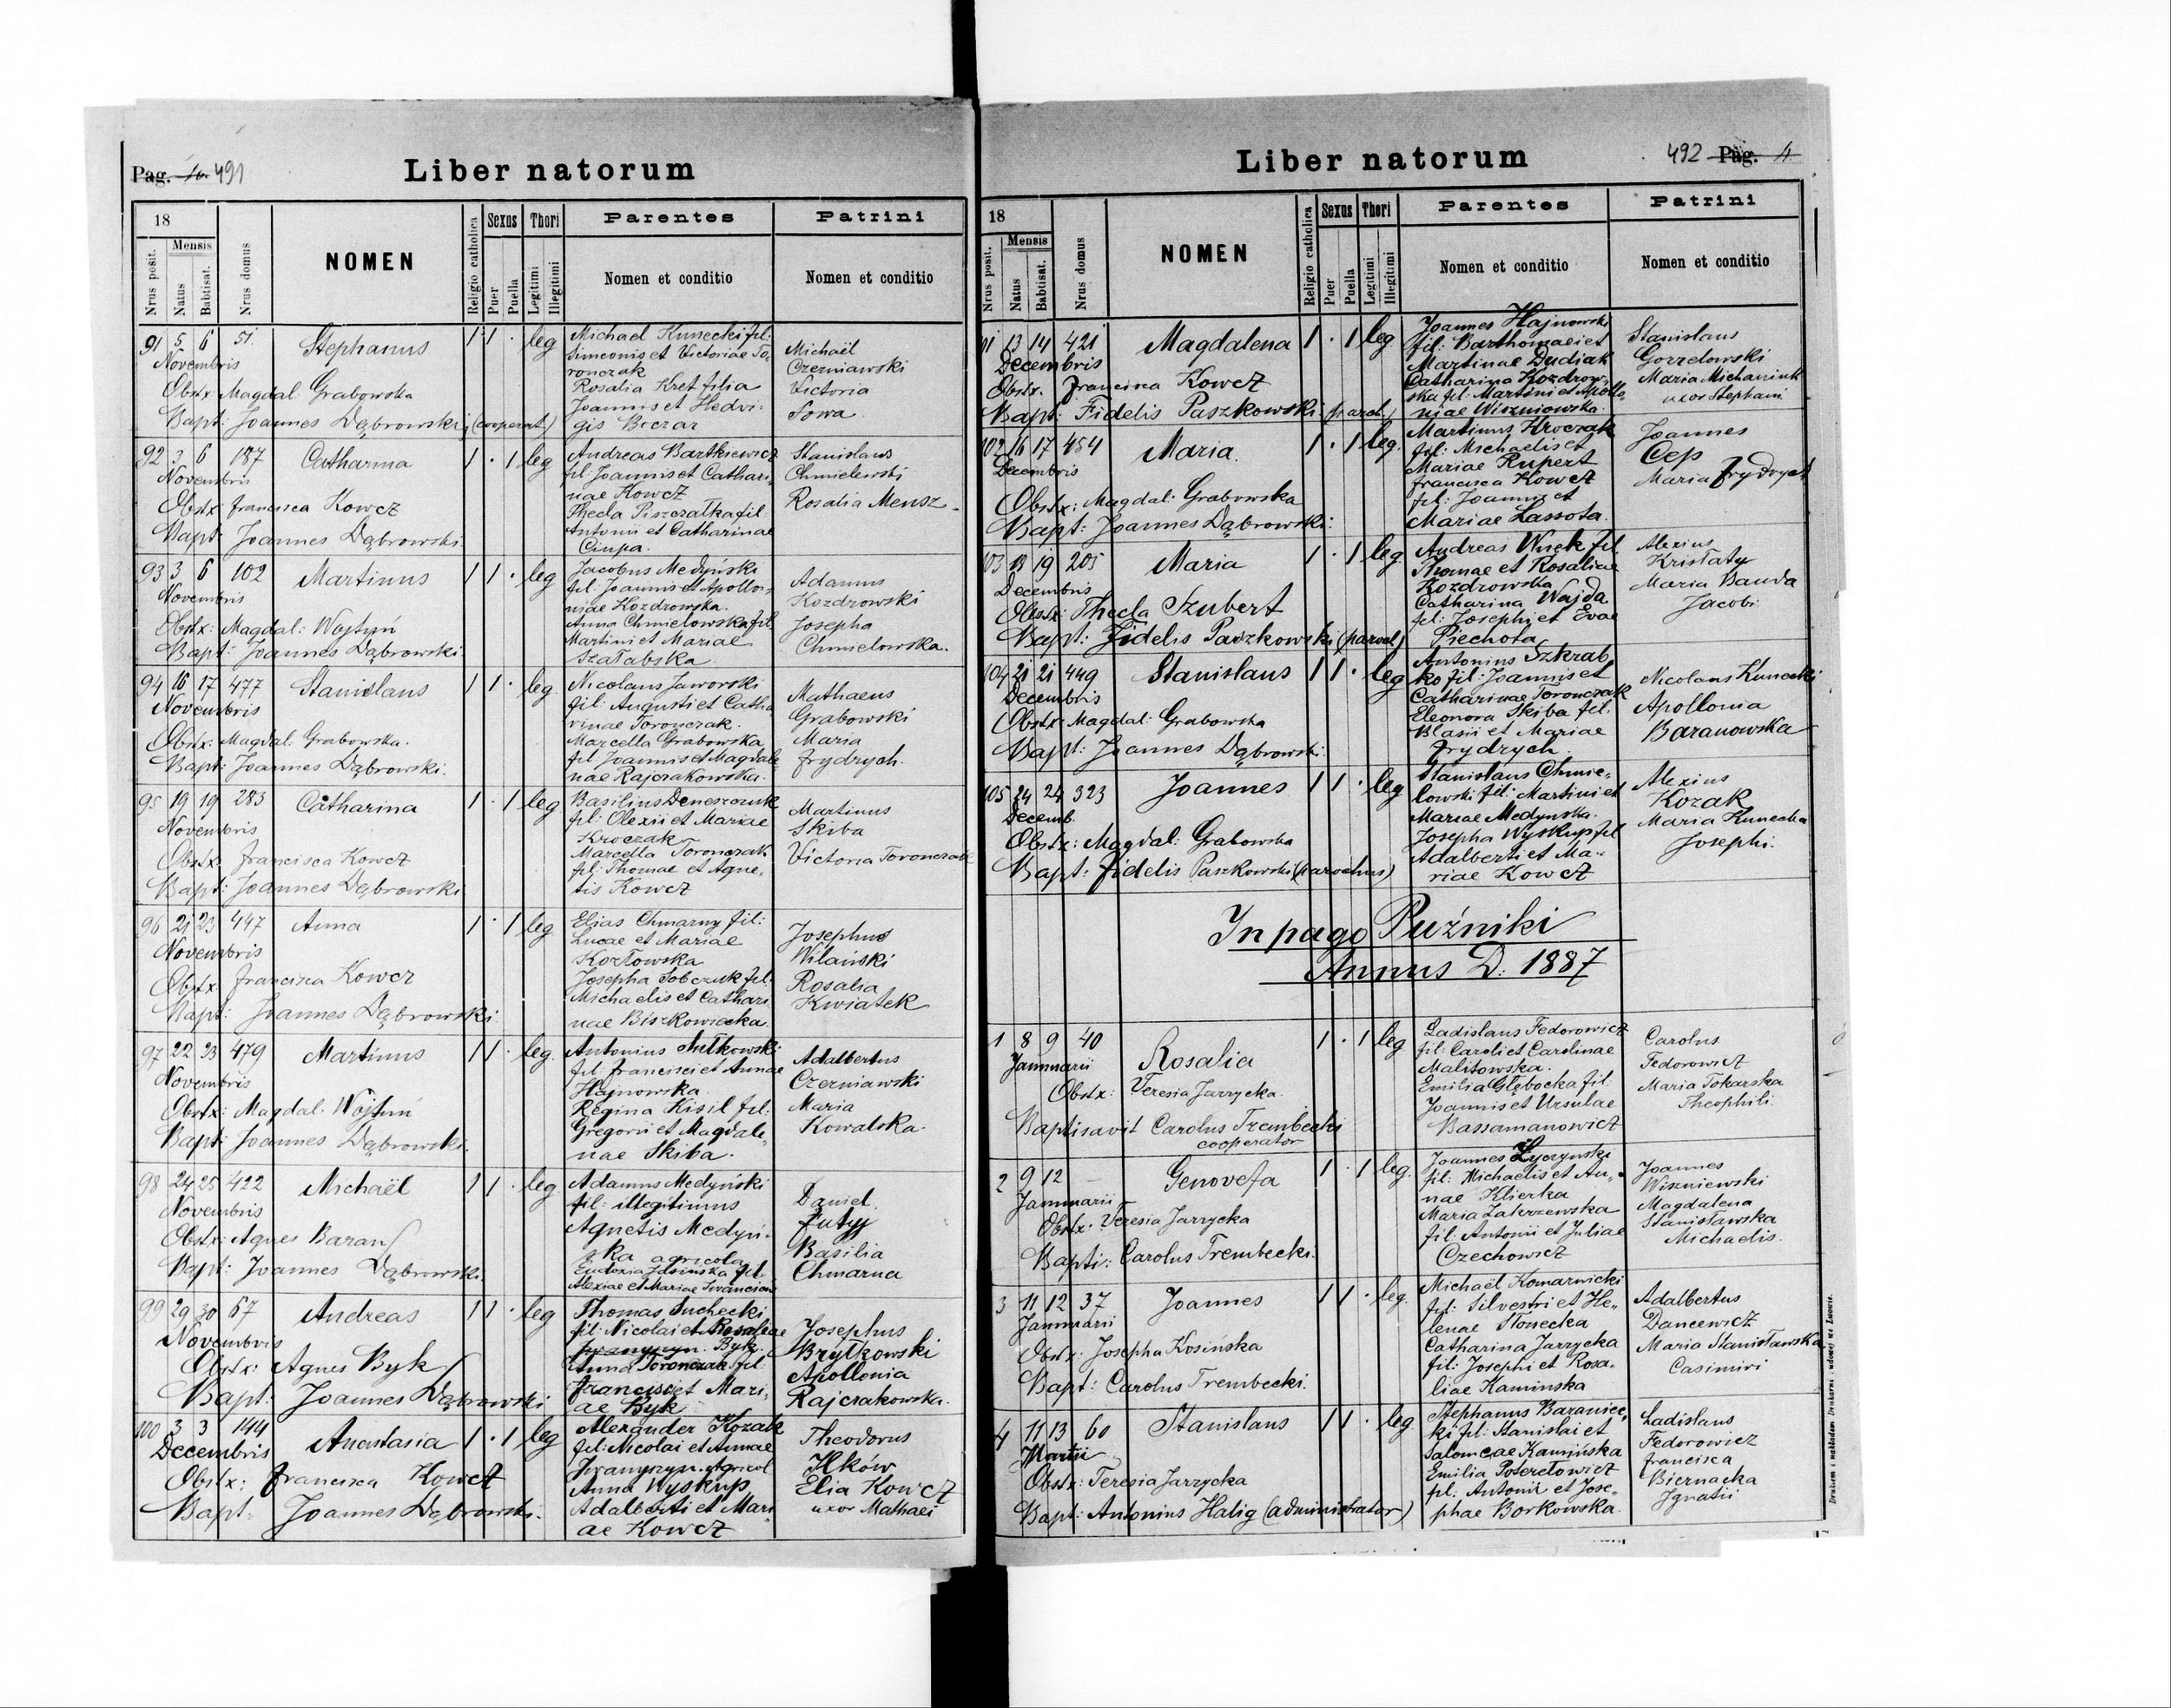 Pag. 10. 491
Liber natorum
18
Nrus posit.
Mensis
Natus
Babtisat.
Nrus domus
NOMEN
Religio catholica
Sexus
Puer
Puella
Thori
Legitimi
Illegitimi
Parentes
Nomen et conditio
Patrini
Nomen et conditio
91 5 6 51. Stephanus 1 1 · leg
Novembris
Obstx: Magdal Grabowska
Bapt: Joannes Dąbrowski (cooperat)
Michael Kunecki fil:
Simeonis et Victoriae To,
ronczak
Rosalia Kret filia
Joannis et Hedvi-
gis Beczar
Michaël
Czerniawski
Victoria
Sowa
92 3 6 187 Catharina 1 · 1 leg
Novembris
Obstx francisca Kowcz
Bapt: Joannes Dąbrowski
Andreas Bartkiewicz
fil: Joannis et Cathari,
nae Kowcz
Thecla Piszczatka fil:
Antonii et Catharinae
Ciupa.
Stanislaus
Chmielewski
Rosalia Mensz
93 3 6 102 Martinus 1 1 · leg
Novembris
Obstx: Magdal: Wojtyń
Bapt: Joannes Dąbrowski
Jacobus Medyński
fil: Joannis et Apollo-
niae Kozdrowska.
Anna Chmielowska fil
Martini et Mariae
Szałabska
Adamus
Kozdrowski
Josepha
Chmielowska.
94 16 17 477 Stanislaus 1 1 · leg.
Novembris
Obstx: Magdal. Grabowska.
Bapt: Joannes Dąbrowski.
Nicolaus Jaworski
fil: Augusti et Catha
rinae Toronczak.
Marcella Grabowska
fil Joannis et Magdale
nae Rajczakowska.
Mathaeus
Grabowski
Maria
frydrych.
95 19 19 283 Catharina 1 · 1 leg
Novembris
Obstx: francisca Kowcz
Bapt: Joannes Dąbrowski
Basilius Deneszczuk
fil: Olexii et Mariae
Kroczak
Marcella Toronczak
fil: Thomae et Agne,
tis Kowcz
Martinus
Skiba
Victoria Toronczak
96 21 23 447 Anna 1 · 1 leg
Novembris
Obstx francisca Kowcz
Bapt: Joannes Dąbrowski
Elias Chmarny fil:
Lucae et Mariae
Kozłowska
Josepha Sobczuk fil.
Michaelis et Cathari
nae Biszkowiecka.
Josephus
Wilański
Rosalia
Kwiatek
97 22 23 479 Martinus 1 1 · leg.
Novembris
Obstx: Magdal. Wojtyń
Bapt: Joannes Dąbrowski.
Antonius Sutkowski
fil. francisci et Annae
Hajnowska
Regina Kisil fil:
Gregorii et Magdale,
nae Skiba.
Adalbertus
Czerniawski
Maria
Kowalska.
98 24 25 422 Michaël 1 1 · leg.
Novembris
Obstx: Agnes Baran
Bapt: Joannes Dąbrowski
Adamus Medyński
fil: illegitimus
Agnetis Medyń-
ska agricola
Eudoxia Jasińska fil.
Alexiae et Mariae
Daniel
Futyj
Basilia
Chmarna
99 29 30 67 Andreas 1 1 · leg
Novembris
Obstx: Agnes Byk
Bapt: Joannes Dąbrowski
Thomas Suchecki
fil: Nicolai et Rosaliae
Iwanyszyn. Byk.
Anna Toronczak fil
francisci et Mari,
ae Byk
Josephus
Brytkowski
Apollonia
Rajczakowska.
100 3 3 144 Anastasia 1 · 1 leg
Decembris
Obstx: francisca Kowcz
Bapt: Joannes Dąbrowski.
Alexander Kozak
fil: Nicolai et Annae
Iwanyszyn. Agricol
Anna Wyskup
Adalberti et Mari
ae Kowcz
Theodorus
Ilków
Elia Kowcz
uxor Mathaei
Liber natorum
492 Pag. 11
18
Nrus posit.
Mensis
Natus
Babtisat.
Nrus domus
NOMEN
Religio catholica
Sexus
Puer
Puella
Thori
Legitimi
Illegitimi
Parentes
Nomen et conditio
Patrini
Nomen et conditio
01 13 14 421 Magdalena 1 · 1 leg
Decembris
Obstx. francisca Kowcz
Bapt: Fidelis Paszkowski (paroch)
Joannes Hajnowski
fil: Barthomaei et
Martinae Dudiak
Catharina Kozdrow-
ska fil: Martini et Apollo
niae Wiszniowska.
Stanislaus
Gorzelowski
Maria Michaniuk
uxor Stephani
102 16 17 454 Maria. 1 · 1 leg.
Decembris
Obstx: Magdal: Grabowska
Bapt: Joannes Dąbrowski:
Martinus Kroczak
fil: Michaelis et
Mariae Rupert
francisca Kowcz
fil: Joannis et
Mariae Lassota.
Joannes
Cep
Maria frydrych
103 18 19 205 Maria 1 · 1 leg.
Decembris
Obstx: Thecla Szubert
Bapt: Fidelis Paszkowski (paroch)
Andreas Wnęk fil
Thomae et Rosaliae
Kozdrowska
Catharina Wajda
fil: Josephi et Evae
Piechota
Alexius
Kristaty
Maria Bauda
Jacobi
104 21 21 449 Stanislaus 1 1 · leg
Decembris
Obstx: Magdal: Grabowska
Bapt: Joannes Dąbrowski:
Antonius Szkrab
ko fil: Joannis et
Catharinae Toronczak
Eleonora Skiba fil.
Blasii et Mariae
frydrych.
Nicolaus Kunecki
Apollonia
Baranowska
105 24 24 323 Joannes 1 1 · leg
Decemb.
Obstx: Magdal: Grabowska
Bapt: fidelis Paszkowski (parochus)
Stanislaus Chmie,
lowski fil: Martini et
Mariae Medynska.
Josepha Wyskup fil
Adalberti et Ma-
riae Kowcz
Alexius
Kozak
Maria Kunecka
Josephi.
In pago Puźniki
Annus D. 1887
1 8 9 40 Rosalia 1 · 1 leg
Januarii
Obstx: Teresia Jarzycka.
Baptisavit Carolus Trembecki
cooperator
Ladislaus Fedorowicz
fil: Caroli et Carolinae
Malitowska.
Emilia Głębocka fil:
Joannis et Ursulae
Bassamanowicz
Carolus
Fedorowicz
Maria Tokarska
Theophili.
2 9 12 – Genovefa 1 · 1 leg.
Januarii
Obstx: Teresia Jarzycka
Bapti: Carolus Trembecki.
Joannes Łyczynski
fil: Michaelis et An,
nae Klierka
Maria Zakrzewska
fil: Antonii et Juliae
Czechowicz
Joannes
Wiszniewski
Magdalena
Stanisławska
Michaelis.
3 11 12 37 Joannes 1 1 · leg.
Januarii
Obstx: Josepha Kosińska
Bapt: Carolus Trembecki.
Michaël Komarnicki
fil: Silvestri et He,
lenae Słonecka
Catharina Jarzycka
fil: Josephi et Rosa-
liae Kaminska
Adalbertus
Dancewicz
Maria Stanisławska
Casimiri
4 11 13 60 Stanislaus 1 1 · leg.
Martii
Obstx: Teresia Jarzycka
Bapt: Antonius Halig (administrator)
Stephanus Baraniec,
ki fil: Stanislai et
Salomeae Kamińska
Emilia Poteretowicz
fil. Antonii et Jose-
phae Borkowska.
Ladislaus
Fedorowicz
francisca
Biernacka
Ignatii